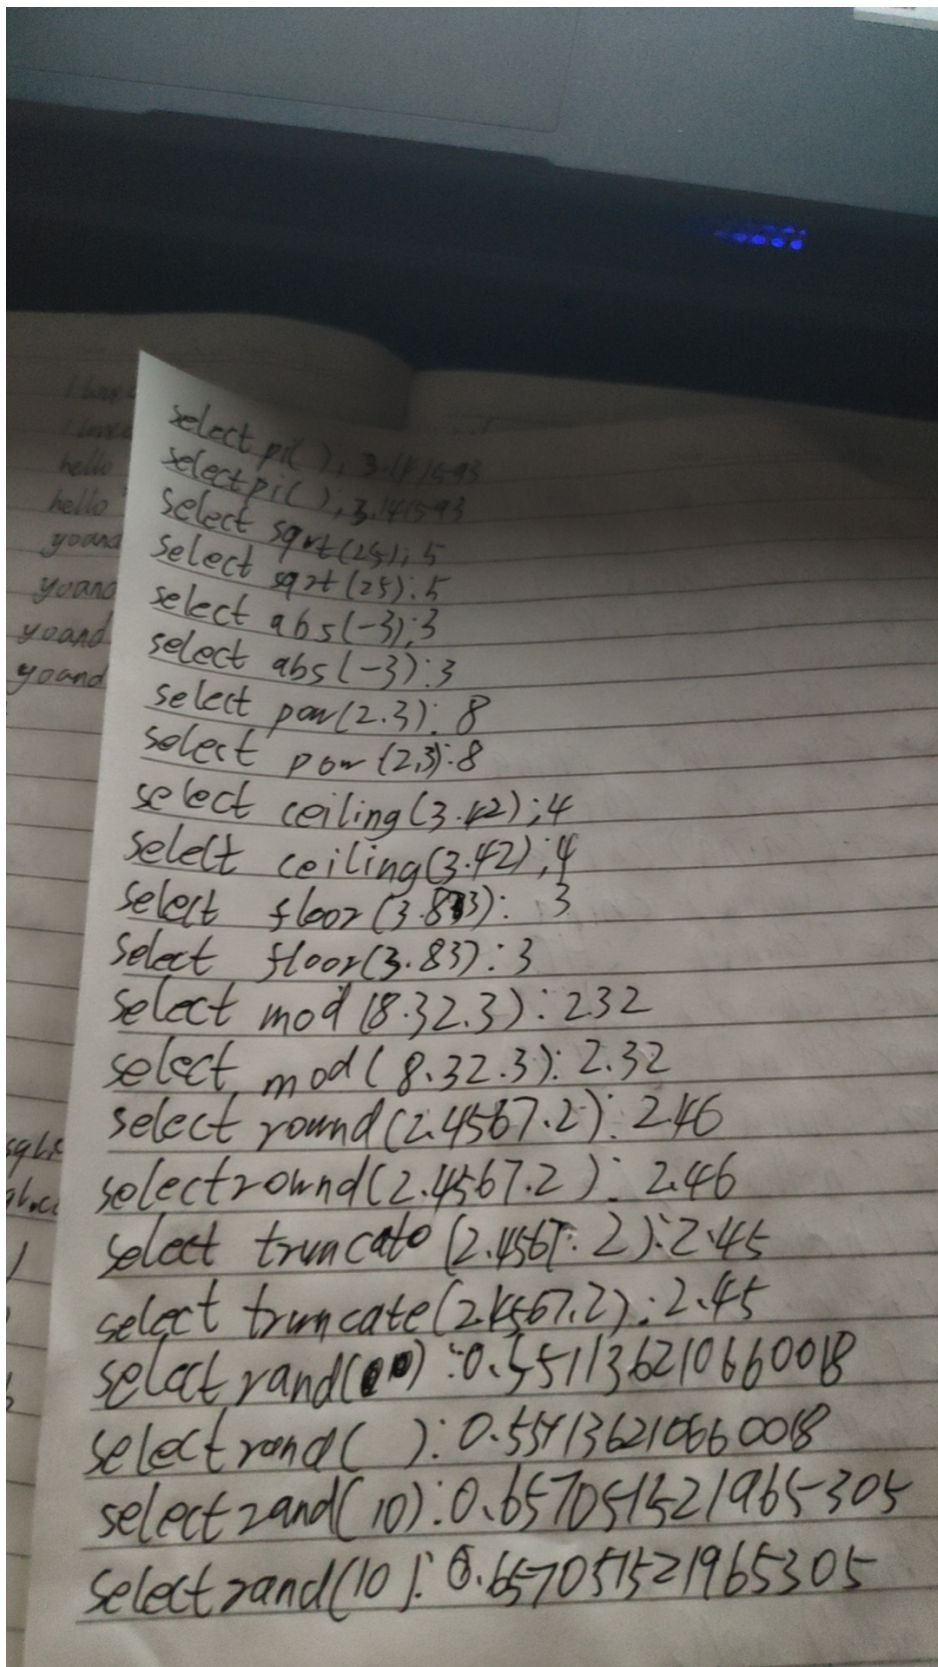 I love
I love
hello
hello
yoand
yoand
yoand
yoand
select pi( ); 3.141593
select pi( ); 3.141593
select sqrt(25); 5
select sqrt(25):5
select abs(-3);3
select abs(-3):3
select pow(2.3): 8
select pow(2,3):8
select ceiling(3.42);4
select ceiling(3.42);4
select floor(3.833): 3
select floor(3.83):3
select mod(8.32.3):2.32
select mod(8.32.3):2.32
select round(2.4567.2):2.46
select round(2.4567.2):2.46
select truncate(2.4567.2):2.45
select truncate(2.4567.2):2.45
select rand( ):0.551136210660018
select rand( ):0.5541362106660018
select rand(10):0.657051521965305
select rand(10):0.657051521965305